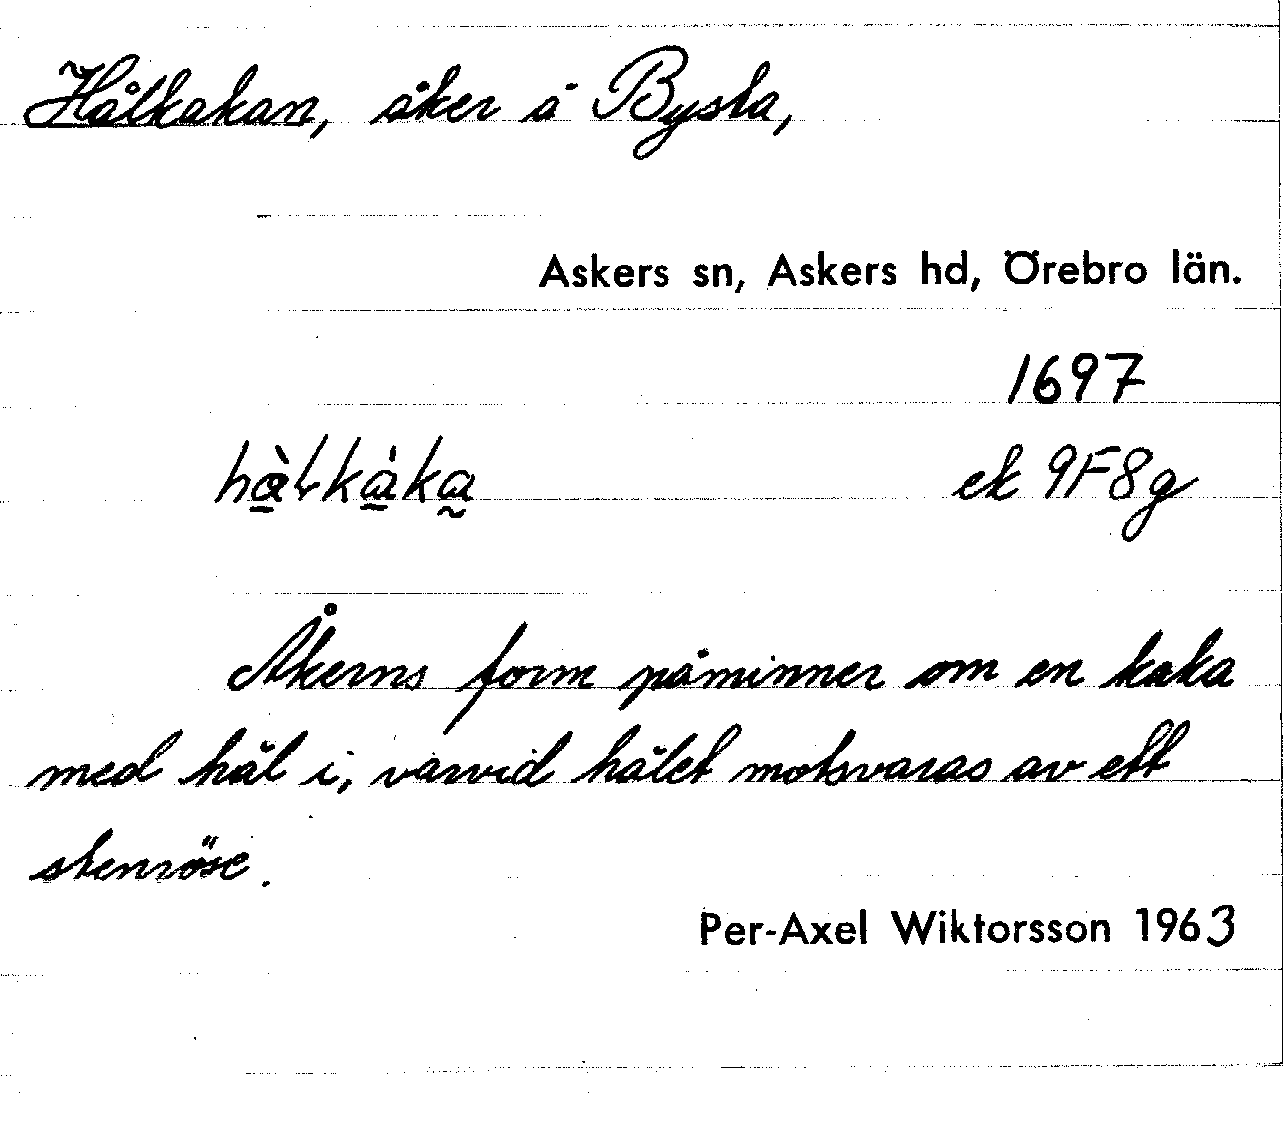 Hålkakan, åker å Bysta,
Askers sn, Askers hd, Örebro län.
1697
ek 9F8g
Åkerns form påminner om en kaka
med hål i, varvid hålet motsvaras av ett
stenröse.
Per-Axel Wiktorsson 1963